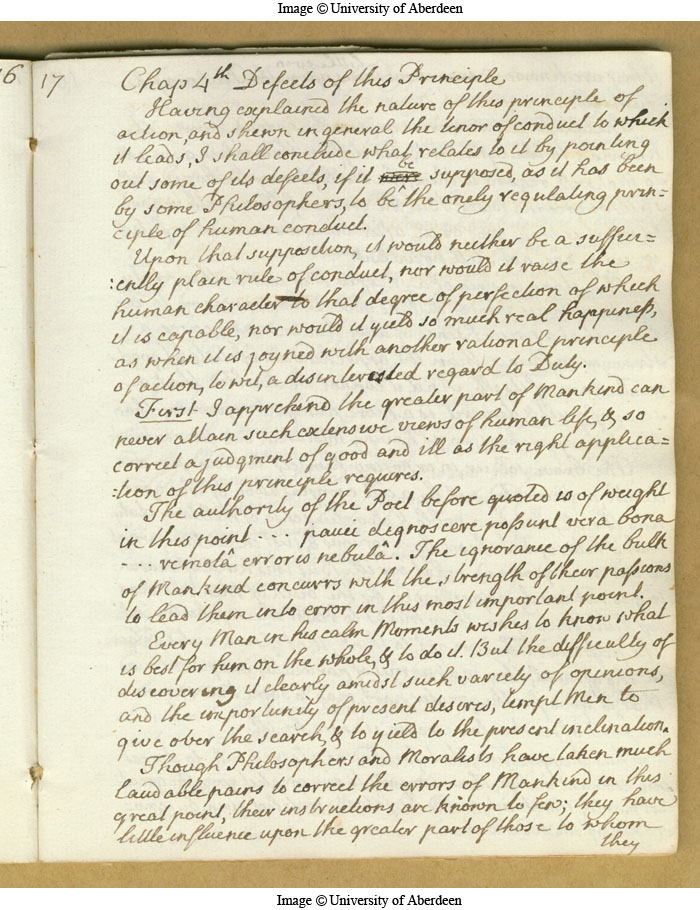 Image © University of Aberdeen
16
17
Chap 4th Defects of this Principle
Having explained the nature of this principle of
action, and shewn in general the tenor of conduct to which
it leads, I shall conclude what relates to it by pointing
be
out some of its defects, if it were supposed, as it has been
by some Philosophers, to be the onely regulating prin=
ciple of human conduct.
Upon that supposition, it would neither be a suffici=
:ently plain rule of conduct, nor would it raise the
human character to that degree of perfection of which
it is capable, nor would it yield so much real happiness,
as when it is joyned with another rational principle
of action, to wit, a disinterested regard to Duty.
First I apprehend the greater part of Mankind can
never attain such extensive views of human life, & so
correct a judgment of good and ill as the right applica=
:tion of this principle requires.
The authority of the Poet before quoted is of weight
in this point . . . pauci dignoscere possunt vera bona
. . . remotâ erroris nebulâ. The ignorance of the bulk
of Mankind concurrs with the strength of their passions
to lead them into error in this most important point.
Every Man in his calm Moments wishes to know what
is best for him on the whole, & to do it. But the difficulty of
discovering it clearly amidst such variety of opinions,
and the importunity of present desires, tempt Men to
give over the search, & to yield to the present inclination.
Though Philosophers and Moralists have taken much
laudable pains to correct the errors of Mankind in this
great point, their instructions are known to few; they have
little influence upon the greater part of those to whom
they
Image © University of Aberdeen